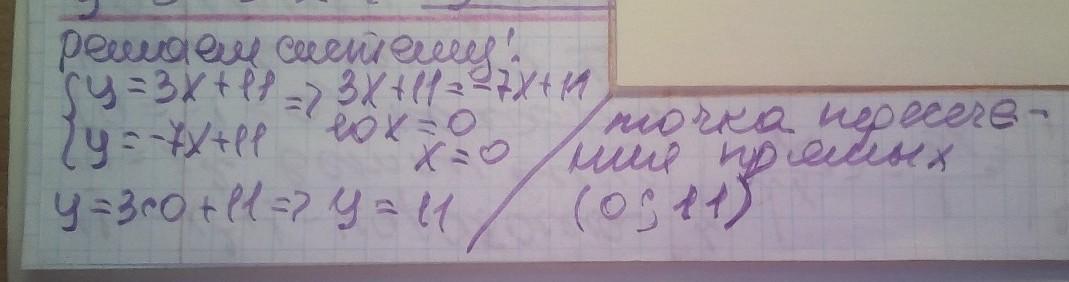 решаем систему:
{ y = 3x + 11 => 3x + 11 = -7x + 11
{ y = -7x + 11
10x = 0
x = 0
y = 3·0 + 11 => y = 11
точка пересече-
ния прямых
(0; 11)